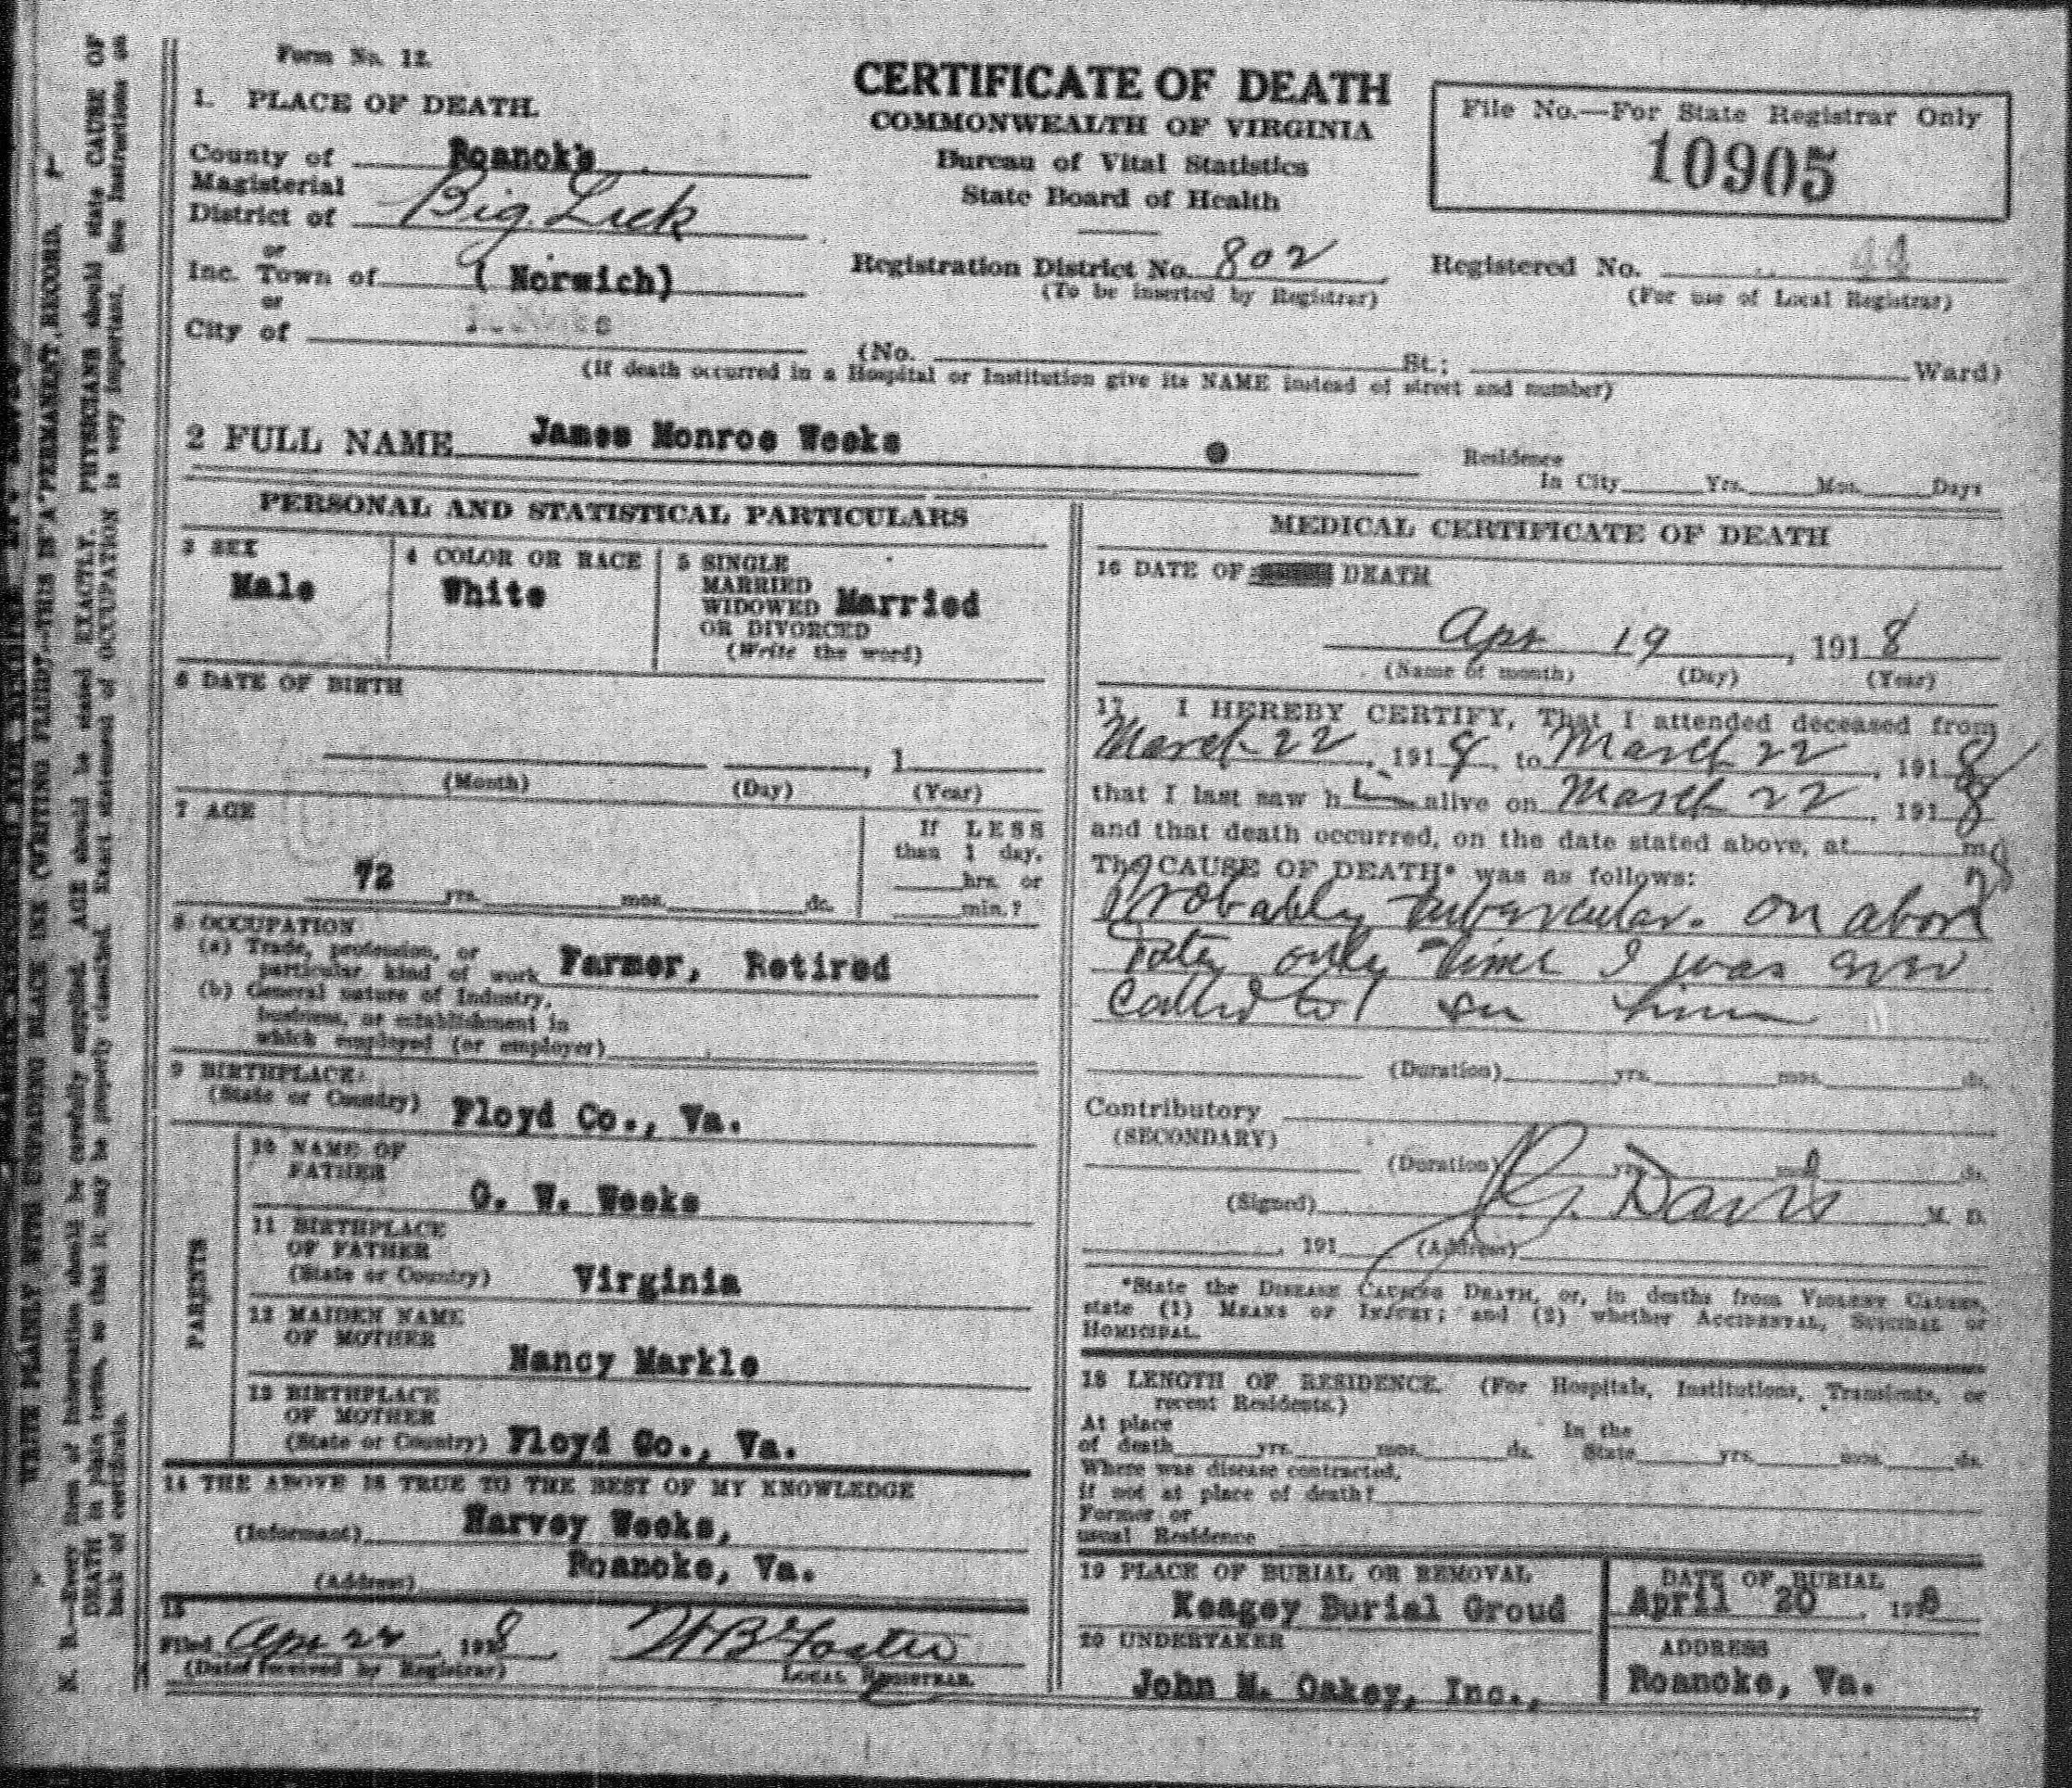 Form No. 12.
1. PLACE OF DEATH.
CERTIFICATE OF DEATH
COMMONWEALTH OF VIRGINIA
Bureau of Vital Statistics
State Board of Health
File No.—For State Registrar Only
10905
County of Roanoke
Magisterial
District of Big Lick
or
Inc. Town of (Norwich)
or
City of
Registration District No. 802
(To be inserted by Registrar)
Registered No. 44
(For use of Local Registrar)
(No. St.; Ward)
(If death occurred in a Hospital or Institution give its NAME instead of street and number)
2 FULL NAME James Monroe Weeks
Residence
In City Yrs. Mos. Days
PERSONAL AND STATISTICAL PARTICULARS
3 SEX
Male
4 COLOR OR RACE
White
5 SINGLE
MARRIED
WIDOWED Married
OR DIVORCED
(Write the word)
6 DATE OF BIRTH
, 1
(Month) (Day) (Year)
7 AGE
72 yrs. mos. ds.
If LESS
than 1 day,
hrs. or
min.?
8 OCCUPATION
(a) Trade, profession, or
particular kind of work Farmer, Retired
(b) General nature of Industry,
business, or establishment in
which employed (or employer)
9 BIRTHPLACE
(State or Country) Floyd Co., Va.
PARENTS
10 NAME OF
FATHER
G. W. Weeks
11 BIRTHPLACE
OF FATHER
(State or Country) Virginia
12 MAIDEN NAME
OF MOTHER
Nancy Markle
13 BIRTHPLACE
OF MOTHER
(State or Country) Floyd Co., Va.
14 THE ABOVE IS TRUE TO THE BEST OF MY KNOWLEDGE
(Informant) Harvey Weeks,
(Address) Roanoke, Va.
15
Filed Apr 22, 1918 W B Foster
(Date received by Registrar) LOCAL REGISTRAR.
MEDICAL CERTIFICATE OF DEATH
16 DATE OF DEATH
Apr 19, 1918
(Name of month) (Day) (Year)
17 I HEREBY CERTIFY, That I attended deceased from
March 22, 1918, to March 22, 1918
that I last saw h alive on March 22, 1918
and that death occurred, on the date stated above, at m
The CAUSE OF DEATH* was as follows:
Probably tubercular. On above
date only time I was ever
called to see him
(Duration) yrs. mos. ds.
Contributory
(SECONDARY)
(Duration) yrs. mos. ds.
(Signed) J.G. Davis M. D.
, 191 (Address)
*State the DISEASE CAUSING DEATH, or, in deaths from VIOLENT CAUSES,
state (1) MEANS OF INJURY; and (2) whether ACCIDENTAL, SUICIDAL or
HOMICIDAL.
18 LENGTH OF RESIDENCE. (For Hospitals, Institutions, Transients, or
recent Residents.)
At place In the
of death yrs. mos. ds. State yrs. mos. ds.
Where was disease contracted,
if not at place of death?
Former or
usual Residence
19 PLACE OF BURIAL OR REMOVAL
Keagey Burial Groud
DATE OF BURIAL
April 20, 1918
20 UNDERTAKER
John M. Oakey, Inc.,
ADDRESS
Roanoke, Va.
WRITE PLAINLY WITH UNFADING BLACK INK (WRITING FLUID)—THIS IS A PERMANENT RECORD.
N. B.—Every item of information should be carefully supplied. AGE should be stated EXACTLY. PHYSICIANS should state CAUSE OF
DEATH in plain terms, so that it may be properly classified. Exact statement of OCCUPATION is very important. See instructions on
back of certificate.